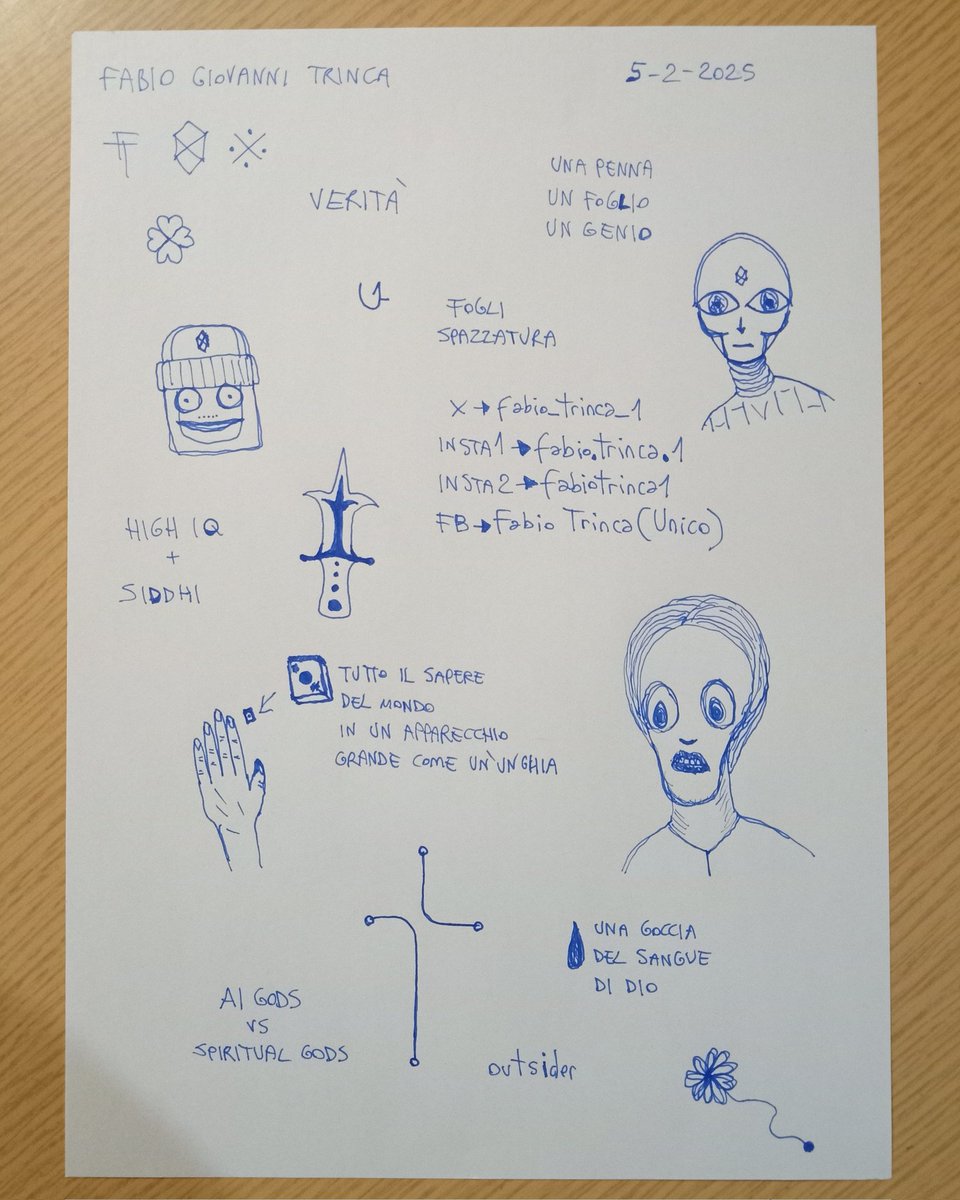 FABIO GIOVANNI TRINCA
5-2-2025
VERITÀ
UNA PENNA
UN FOGLIO
UN GENIO
FOGLI
SPAZZATURA
X → fabio_trinca_1
INSTA1 → fabio.trinca.1
INSTA2 → fabiotrinca1
FB → Fabio Trinca (Unico)
HIGH IQ
+
SIDDHI
TUTTO IL SAPERE
DEL MONDO
IN UN APPARECCHIO
GRANDE COME UN'UNGHIA
UNA GOCCIA
DEL SANGUE
DI DIO
AI GODS
VS
SPIRITUAL GODS
outsider